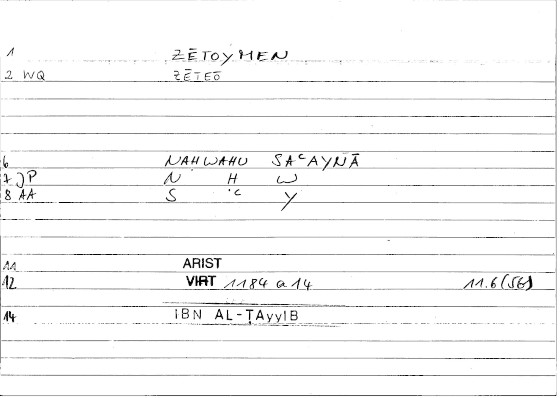 1 ZĒTOYMEN
2 WQ ZĒTEŌ
6 NAḤWAHU SAʿAYNĀ
7 JP N Ḥ W
8 AA S ʿ Y
11 ARIST
12 VIRT 1184 a 14 11.6(56)
14 IBN AL-ṬAyyIB